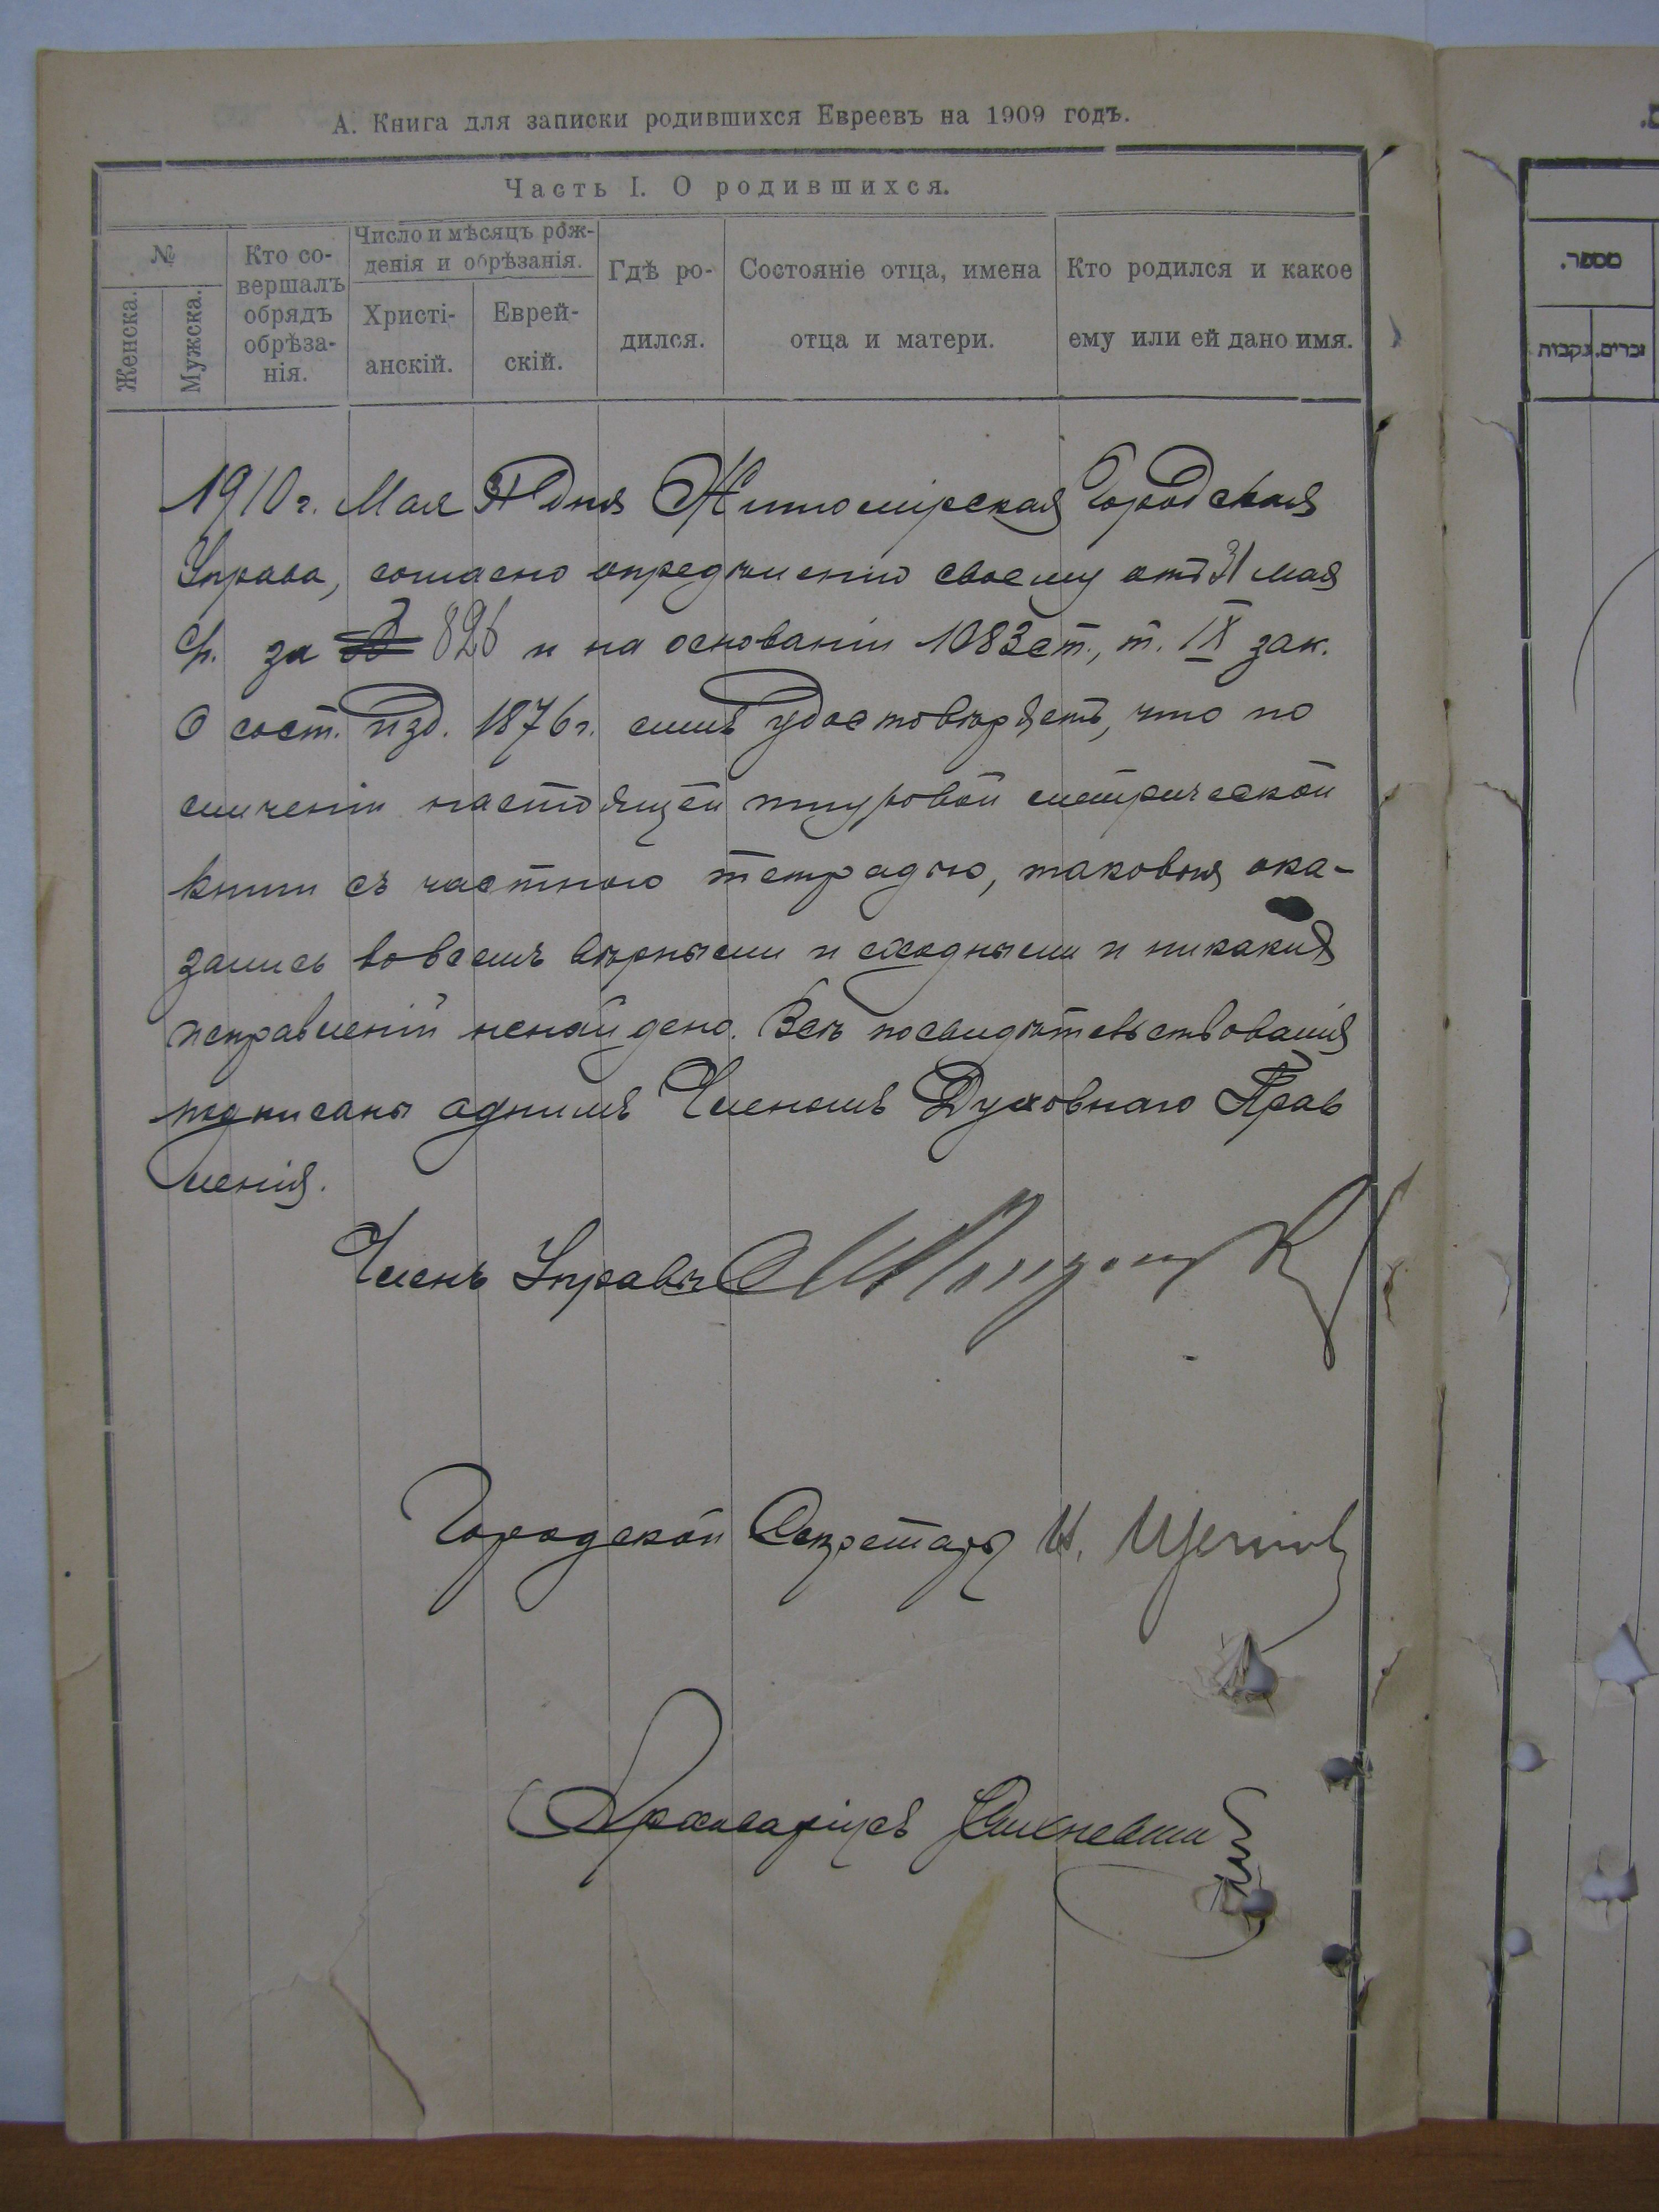 А. Книга для записки родившихся Евреевъ на 1909 годъ.
Часть I. О родившихся.
№
Женска.
Мужска.
Кто со-
вершалъ
обрядъ
обрѣза-
нія.
Число и мѣсяцъ рож-
денія и обрѣзанія.
Христі-
анскій.
Еврей-
скій.
Гдѣ ро-
дился.
Состояніе отца, имена
отца и матери.
Кто родился и какое
ему или ей дано имя.
1910 г. Мая 31 дня Житомірская Городская
Управа, согласно опредѣленію своему отъ 31 мая
с/г. за 826 и на основаніи 1083 ст., т. IX зак.
О сост. изд. 1876 г. симъ удостовѣряетъ, что по
сличеніи настоящей шнуровой метрической
книги съ частною тетрадью, таковыя ока-
зались во всемъ вѣрными и сходными и никакихъ
исправленій ненайдено. Всѣ посвидѣтельствованія
подписаны однимъ Членомъ Духовнаго Прав
ленія.
Членъ Управы
Городской Секретарь И.
Архиваріусъ
מספר.
זכרים.
נקבות